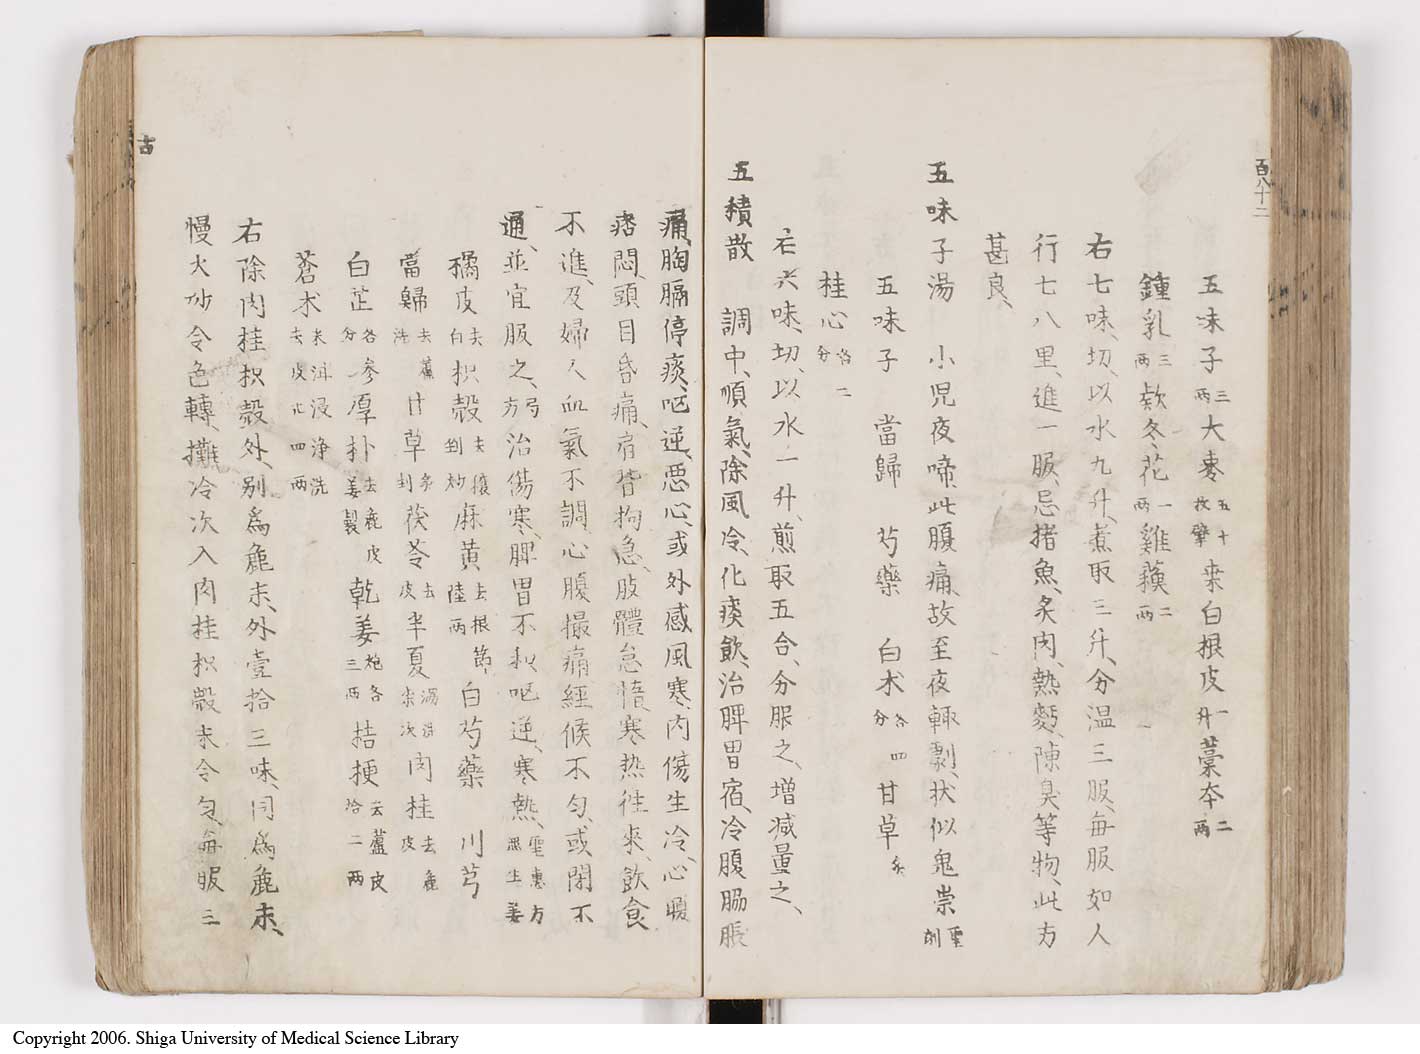 百八十二
五味子三兩大棗五十枚擘桒白根皮一升藁本二兩
鍾乳三兩欵冬花一兩雞蘓二兩
右七味、切、以水九升、煮取三升、分温三服、每服如人
行七八里、進一服、忌猪魚、炙肉、熱麪、陳臭等物、此方
甚良、
五味子湯 小児夜啼、此腹痛、故至夜輙剧、状似鬼祟聖剤
五味子 當歸 芍藥 白术各四分 甘草炙
桂心各二分
右六味、切、以水一升、煎取五合、分服之、増减量之、
五積散 調中、順氣、除風冷、化痰飲、治脾胃宿、冷腹脇脹
痛、胸膈停痰、呕逆、悪心、或外感風寒、内傷生冷、心腹
痞悶、頭目昏痛、肩背拘急、肢體怠惰、寒热徃來、飲食
不進、及婦人血氣不調、心腹撮痛、經候不匀、或閉不
通、並宜服之、局方治傷寒、脾胃不和、呕逆、寒熱、聖惠方無生姜
橘皮去白枳殼去穰剉炒麻黄去根節陸兩白芍藥 川芎
當歸去蘆洗甘草炙剉茯苓去皮半夏湯洗柒次肉桂去麁皮
白芷各参分厚朴去麁皮姜製乾姜炮各三兩桔梗去蘆皮拾二兩
蒼术米泔浸浄洗去皮廿四兩
右除肉桂枳殼外、别為麁末、外壹拾三味、同為麁末、
慢火炒令色轉、攤冷次入肉桂枳殼末令匀、每服三
古